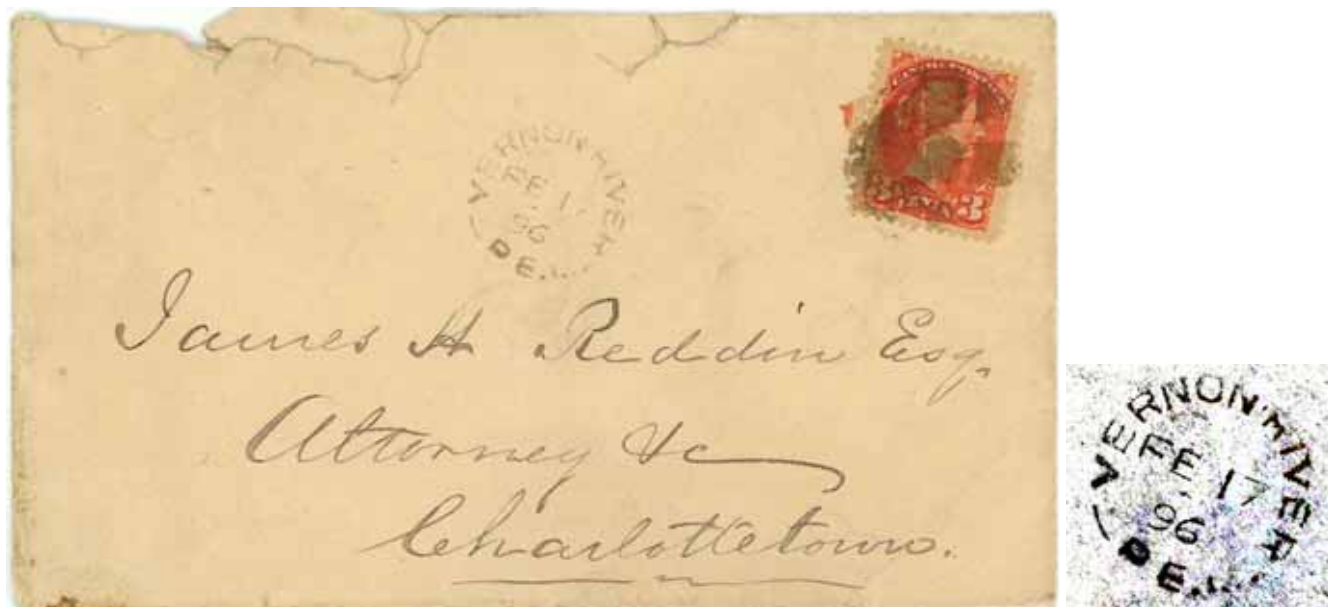 VERNON RIVER
FE 17
96
P.E.I.
3 CENTS 3
James H Reddin Esq.
Attorney &c
Charlottetown.
VERNON RIVER
FE 17
96
P.E.I.